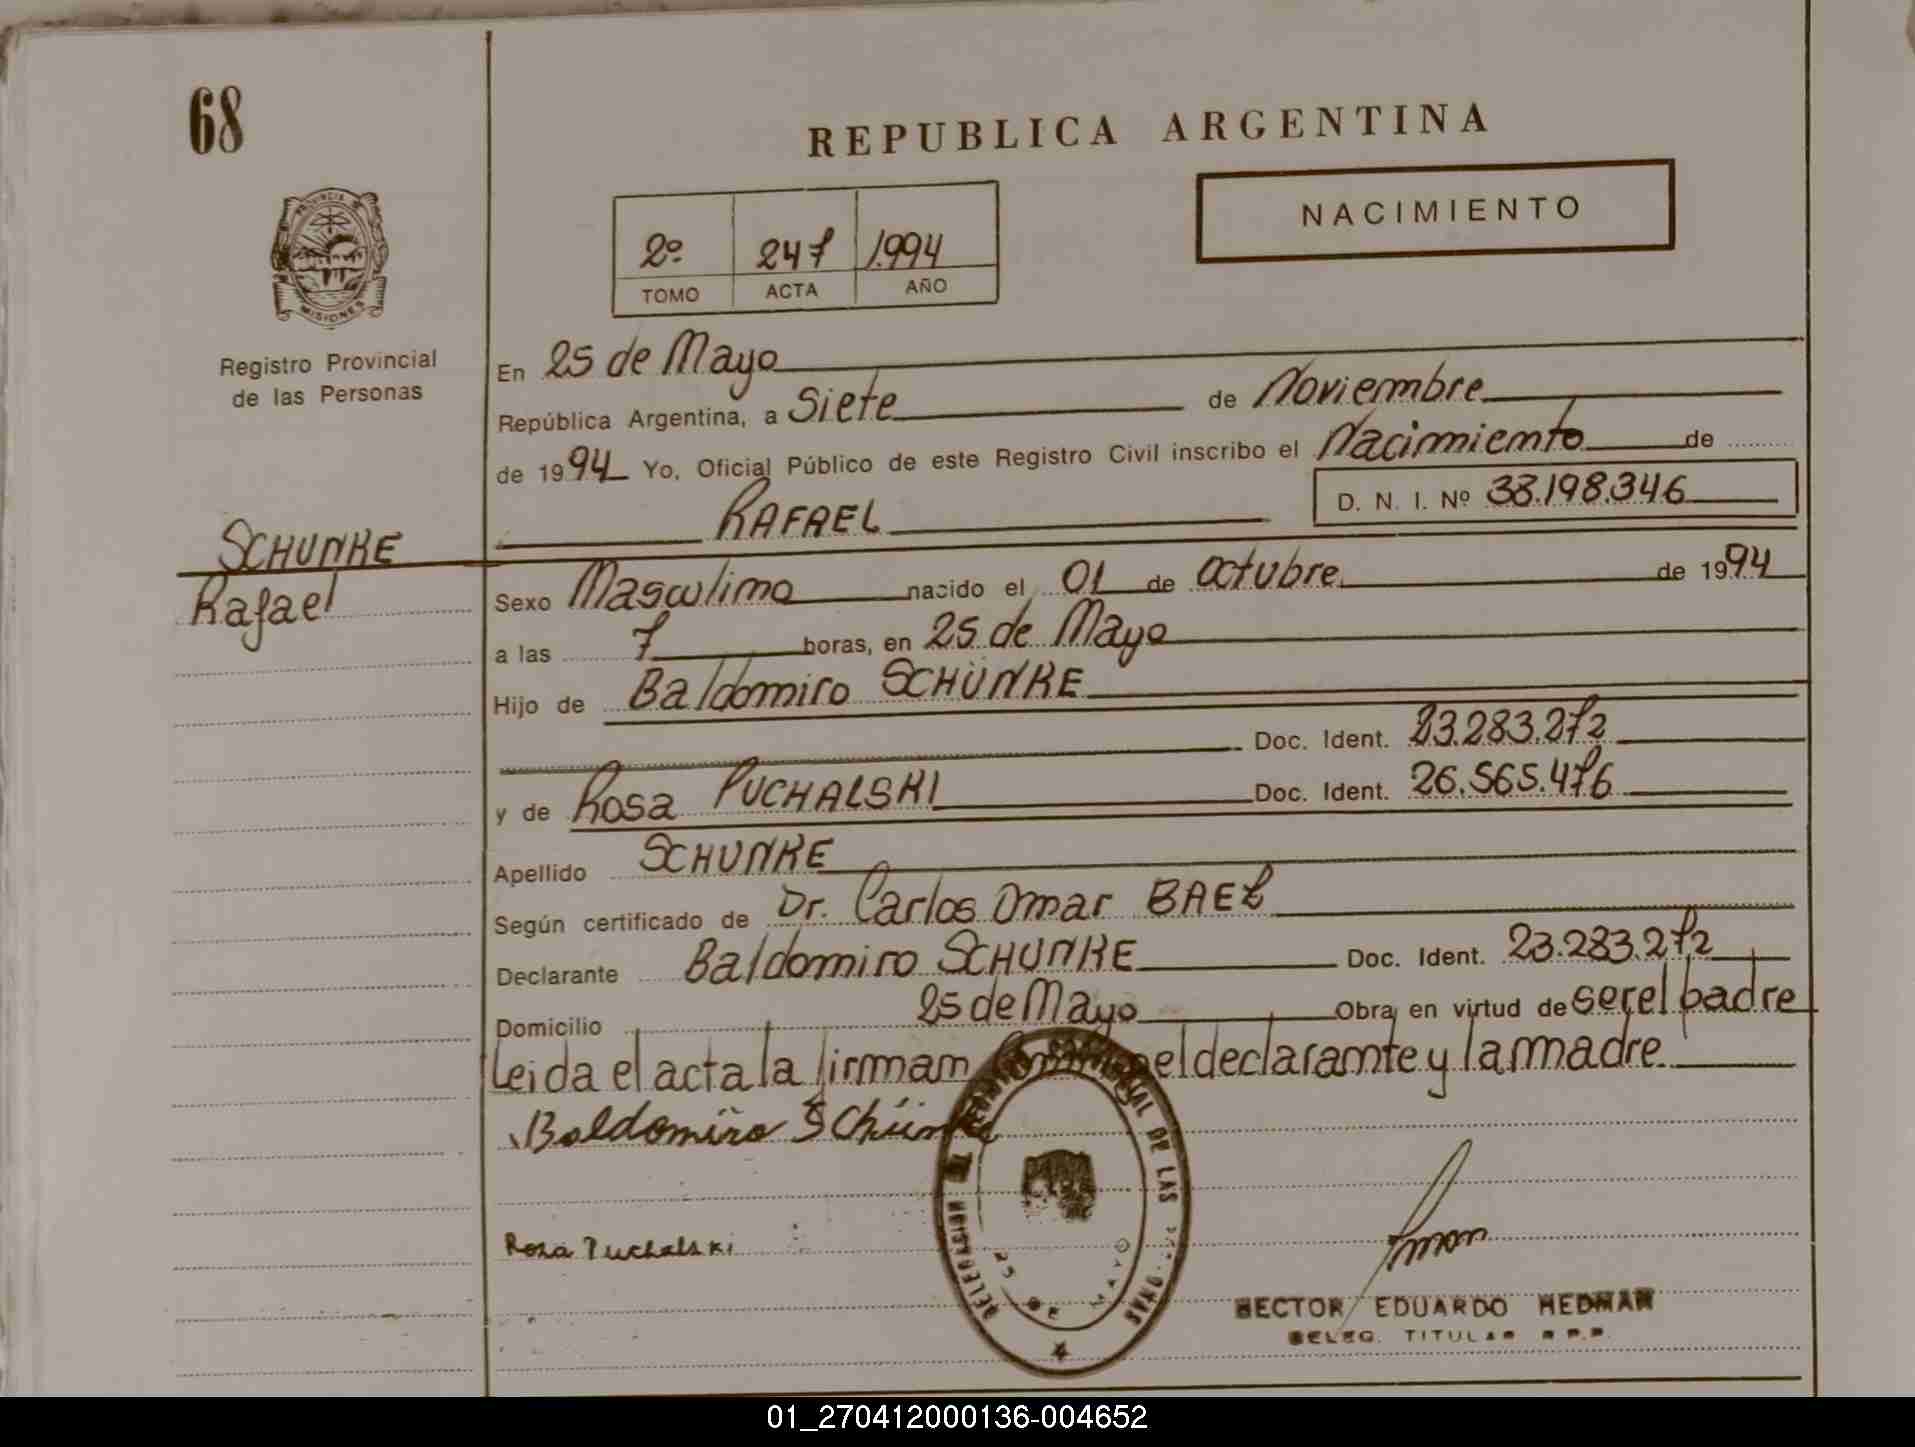 68
REPUBLICA ARGENTINA
NACIMIENTO
2º 247 1.994
TOMO ACTA AÑO
PROVINCIA DE
MISIONES
Registro Provincial
de las Personas
En 25 de Mayo
República Argentina, a Siete de Noviembre
de 1994 Yo, Oficial Público de este Registro Civil inscribo el Nacimiento de
D. N. I. Nº 38.198.346
RAFAEL
SCHUNKE
Rafael
Sexo Masculino nacido el 01 de octubre de 1994
a las 7 horas, en 25 de Mayo
Hijo de Baldomiro SCHÜNKE
Doc. Ident. 23.283.272
y de Rosa PUCHALSKI Doc. Ident. 26.565.476
Apellido SCHUNKE
Según certificado de Dr. Carlos Omar BAEZ
Declarante Baldomiro SCHUNKE Doc. Ident. 23.283.272
Domicilio 25 de Mayo Obra en virtud de ser el padre
Leida el acta la firman el declarante y la madre
Baldomiro Schünke
Rosa Puchalski
DELEGACION DE LAS
25 DE MAYO
HECTOR EDUARDO HEDMAN
DELEG. TITULAR R.P.P.
01_270412000136-004652